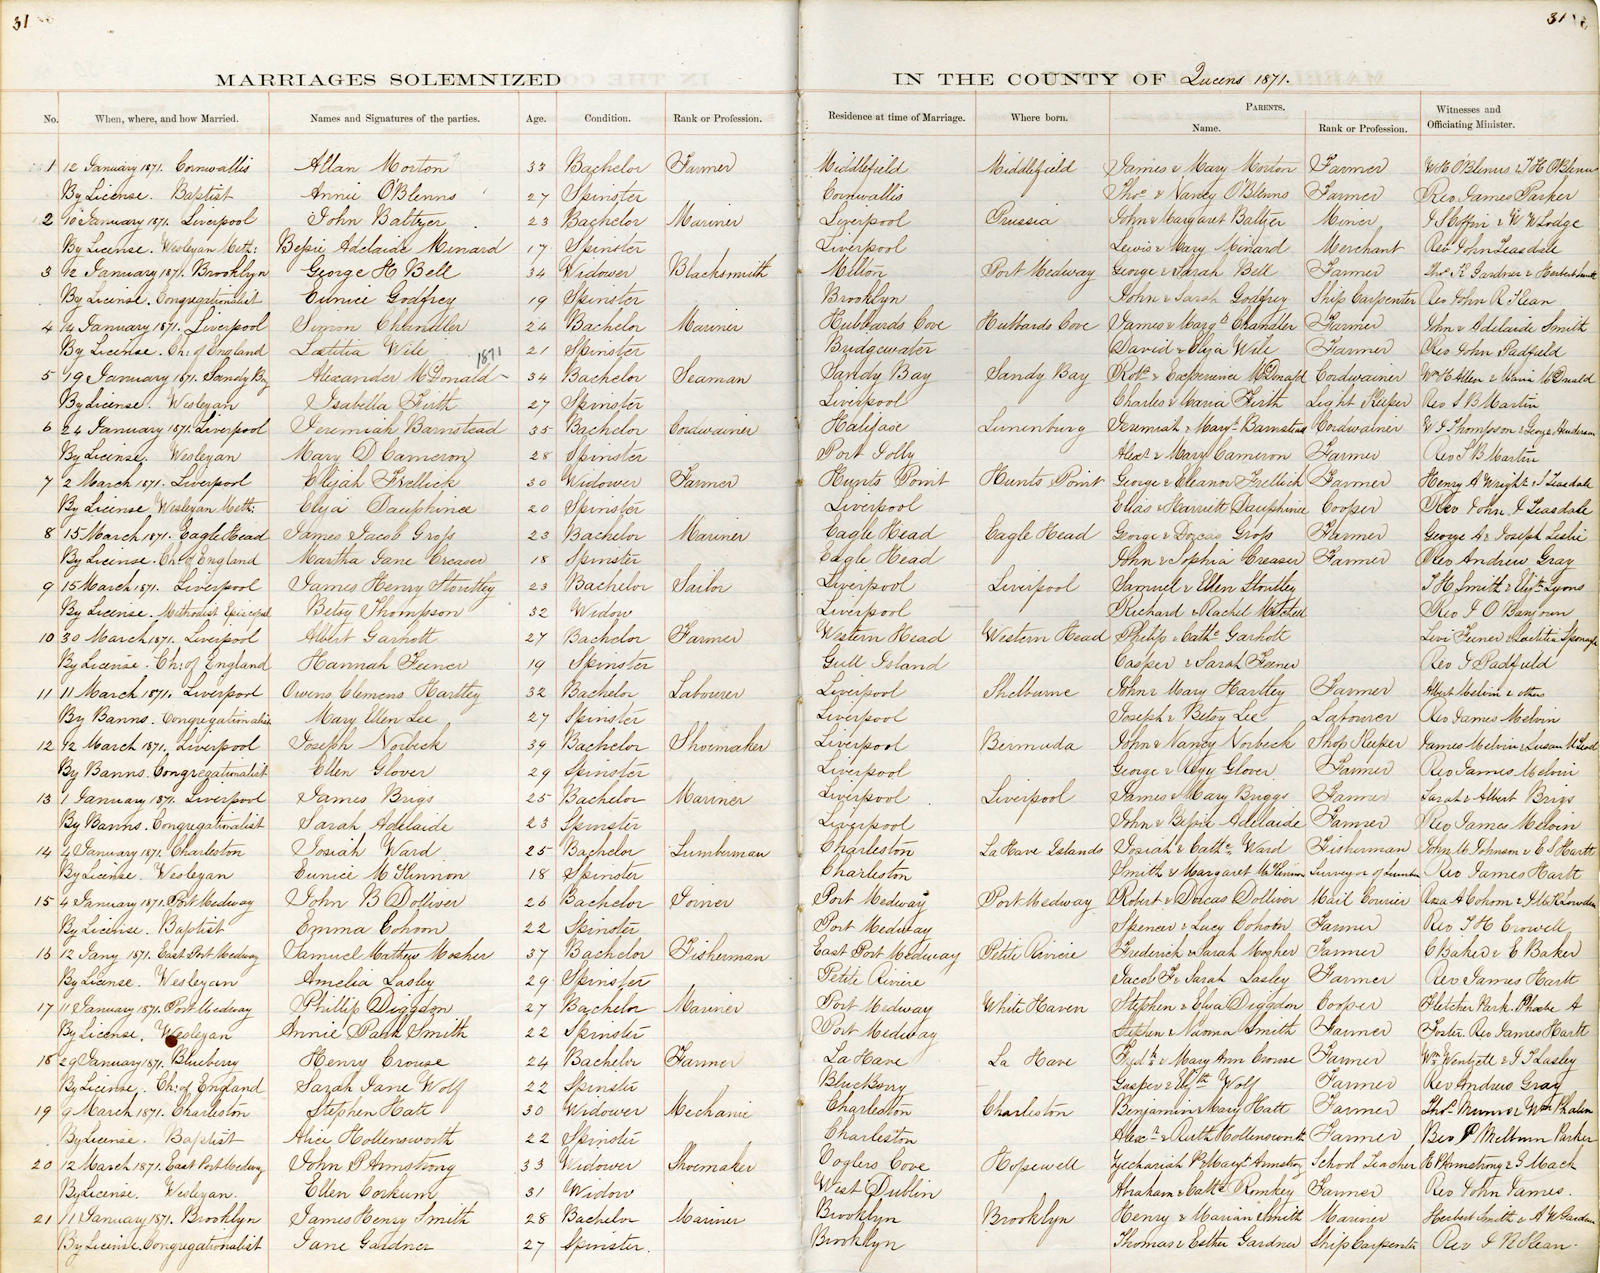 31 31
MARRIAGES SOLEMNIZED IN THE COUNTY OF Queens 1871.
No. When, where, and how Married. Names and Signatures of the parties. Age. Condition. Rank or Profession. Residence at time of Marriage. Where born. PARENTS. Name. Rank or Profession. Witnesses and Officiating Minister.
1 12 January 1871. Cornwallis Allan Morton 33 Bachelor Farmer Middlefield Middlefield James & Mary Morton Farmer W H O'Blenus & T H O'Blenus
By License. Baptist Annie O'Blenns 27 Spinster Cornwallis Thos & Nancy O'Blenns Farmer Rev James Parker
2 10 January 1871. Liverpool John Baltzer 23 Bachelor Mariner Liverpool Prussia John & Margaret Baltzer Miner & W W Lodge
By License. Wesleyan Meth: Bessie Adelaide Minard 17 Spinster Liverpool Lewis & Mary Minard Merchant Rev John Teasdale
3 12 January 1871. Brooklyn George H Bell 34 Widower Blacksmith Milton Port Medway George & Sarah Bell Farmer Thos Gardner & Herbert Smith
By License. Congregationalist Eunice Godfrey 19 Spinster Brooklyn John & Sarah Godfrey Ship Carpenter Rev John R Kean
4 14 January 1871. Liverpool Simon Chandler 24 Bachelor Mariner Hubbards Cove Hubbards Cove James & Margt Chandler Farmer John & Adelaide Smith
By License. Ch: of England Lætitia Wile 21 Spinster Bridgewater David & Eliza Wile Farmer Rev John Padfield
1871
5 19 January 1871. Sandy By Alexander McDonald 34 Bachelor Seaman Sandy Bay Sandy Bay Robt & Experience McDonald Cordwainer Wm H Allen & Maria McDonald
By License. Wesleyan Isabella Firth 27 Spinster Liverpool Charles & Maria Firth Light Keeper Rev S B Martin
6 24 January 1871. Liverpool Jeremiah Barnstead 35 Bachelor Cordwainer Halifax Lunenburg Jeremiah & Mary Barnstead Cordwainer W J Thompson & George Henderson
By License. Wesleyan Mary D Cameron 28 Spinster Port Jolly Alexr & Mary Cameron Farmer Rev S B Martin
7 2 March 1871. Liverpool Elijah Frellick 30 Widower Farmer Hunts Point Hunts Point George & Eleanor Frellich Farmer Henry A Wright & Teasdale
By License Wesleyan Meth: Eliza Dauphinee 20 Spinster Liverpool Elias & Harriett Dauphinee Cooper Rev John J Teasdale
8 15 March 1871. Eagle Head James Jacob Gross 23 Bachelor Mariner Eagle Head Eagle Head George & Dorcas Gross Farmer George A & Joseph Leslie
By License. Ch: of England Martha Jane Creaser 18 Spinster Eagle Head John & Sophia Creaser Farmer Rev Andrew Gray
9 15 March 1871. Liverpool James Henry Stoutley 23 Bachelor Sailor Liverpool Liverpool Samuel & Ellen Stoutley T H Smith & Elizth Lyons
By License. Methodist Episcopal Betsy Thompson 32 Widow Liverpool Richard & Rachel Rev J O Banjoun
10 30 March 1871. Liverpool Albert Garhott 27 Bachelor Farmer Western Head Western Head Philip & Cathe Garhott Levi Feener & Laetitia
By License. Ch: of England Hannah Feener 19 Spinster Gull Island Casper & Sarah Feener Rev J Padfield
11 11 March 1871. Liverpool Owens Clemens Hartley 32 Bachelor Labourer Liverpool Shelburne John & Mary Hartley Farmer Albert Melvin & others
By Banns. Congregationalist Mary Ellen Lee 27 Spinster Liverpool Joseph & Betsy Lee Labourer Rev James Melvin
12 12 March 1871. Liverpool Joseph Norbeck 39 Bachelor Shoemaker Liverpool Bermuda John & Nancy Norbeck Shop Keeper James Melvin & Susan McLeod
By Banns. Congregationalist Ellen Glover 29 Spinster Liverpool George & Glover Farmer Rev James Melvin
13 1 January 1871. Liverpool James Brigs 25 Bachelor Mariner Liverpool Liverpool James & Mary Briggs Farmer Sarah & Albert Brigs
By Banns. Congregationalist Sarah Adelaide 23 Spinster Liverpool John & Bessie Adelaide Farmer Rev James Melvin
14 4 January 1871. Charleston Josiah Ward 25 Bachelor Lumberman Charleston La Have Islands Josiah & Cathe Ward Fisherman John M Johnson & E S Hartt
By License. Wesleyan Eunice McKinnon 18 Spinster Charleston Smith & Margaret McKinnon Surveyor of Lumber Rev James Hartt
15 4 January 1871. Port Medway John B Dolliver 26 Bachelor Joiner Port Medway Port Medway Robert & Dorcas Dolliver Mail Courier Roza A Cohoon &
By License. Baptist Emma Cohoon 22 Spinster Port Medway Spencer & Lucy Cohoon Farmer Rev I H Crowell
16 12 Jany 1871. East Port Medway Samuel Mathews Mosher 37 Bachelor Fisherman East Port Medway Petite Riviere Frederick & Sarah Mosher Farmer C Baker & E Baker
By License. Wesleyan Amelia Lasley 29 Spinster Petite Riviere Jacob F & Sarah Lasley Farmer Rev James Hartt
17 11 January 1871. Port Medway Phillip Diggdon 27 Bachelor Mariner Port Medway White Haven Stephen & Eliza Diggdon Cooper Fletcher Park. Phoebe A
By License. Wesleyan Annie Park Smith 22 Spinster Port Medway Stephen & Naoma Smith Farmer Foster. Rev James Hartt
18 29 January 1871. Blueberry Henry Crouse 24 Bachelor Farmer La Have La Have Fredk & Mary Ann Crouse Farmer Wm Wentzell & J Lasley
By License. Ch: of England Sarah Jane Wolf 22 Spinster BlueBerry Gasper & Elizth Wolf Farmer Rev Andrew Gray
19 9 March 1871. Charleston Stephen Hatt 30 Widower Mechanic Charleston Charleston Benjamin & Mary Hatt Farmer Thos Munro & Wm Phalen
By License. Baptist Alice Hollensworth 22 Spinster Charleston Alexr & Ruth Hollensworth Farmer Rev P Melburn Parker
20 12 March 1871. East Port Medway John P Armstrong 33 Widower Shoemaker Voglers Cove Hopewell Zechariah P & Mary Armstrong School Teacher E P Armstrong & J Mack
By License. Wesleyan. Ellen Corkum 31 Widow West Dublin Abraham & Cathe Romkey Farmer Rev John James.
21 11 January 1871. Brooklyn James Henry Smith 28 Bachelor Mariner Brooklyn Brooklyn Henry & Marian Smith Mariner Herbert Smith & A W Gardner
By License. Congregationalist Jane Gardner 27 Spinster. Brooklyn Thomas & Esther Gardner Ship Carpenter Rev J R Kean.